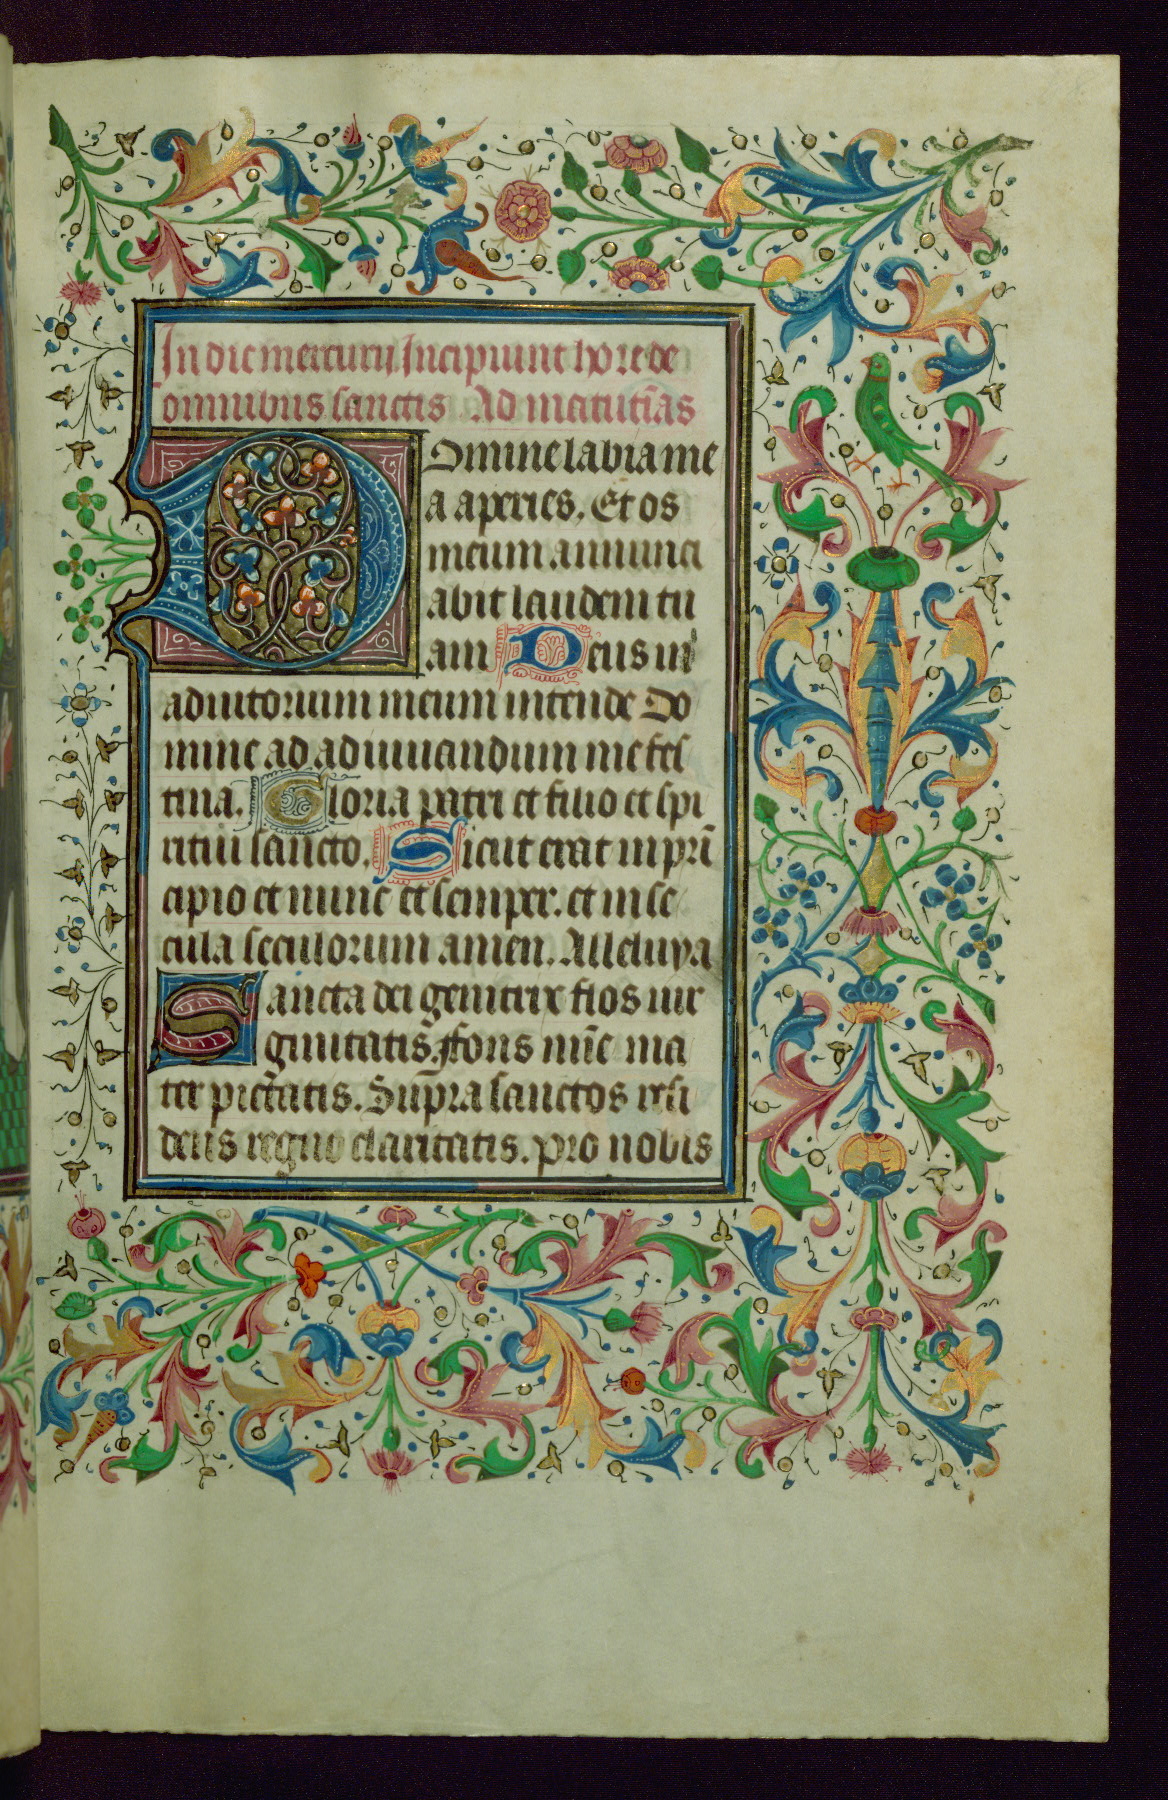 In die mercurij Incipiunt hore de
omnibus sanctis Ad matutĩas
Domine labia me
a aperies. Et os
meum annunci
abit laudem tu
am Deus in
adiutorium meum intende Do
mine ad adiuuandum me fes
tina. Gloria patri et filio et spi
ritui sancto. Sicut erat in prĩ
cipio et nunc et semper. et in se
cula seculorum amen. Alleluya
Sancta dei genitrix flos uir
ginitatis. fons mũe ma
ter pietatis. Supra sanctos resi
dens regno claritatis. pro nobis